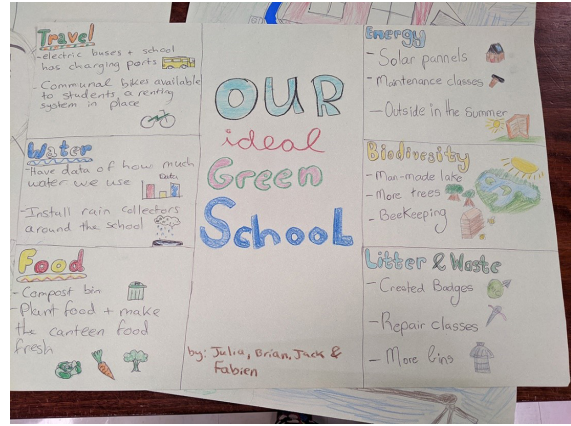 Travel
-electric buses + school
has charging ports
-Communal bikes available
to students, a renting
system in place
Water
-Have data of how much
water we use
Data
-Install rain collectors
around the school
Food
-Compost bin
-Plant food + make
the canteen food
fresh
OUR
ideal
Green
School
by: Julia, Brian, Jack &
Fabien
Energy
-Solar pannels
-Maintenance classes
-Outside in the Summer
Biodiversity
-Man-made lake
-More trees
-BeeKeeping
Litter & Waste
-Crested Badges
-Repair classes
-More bins